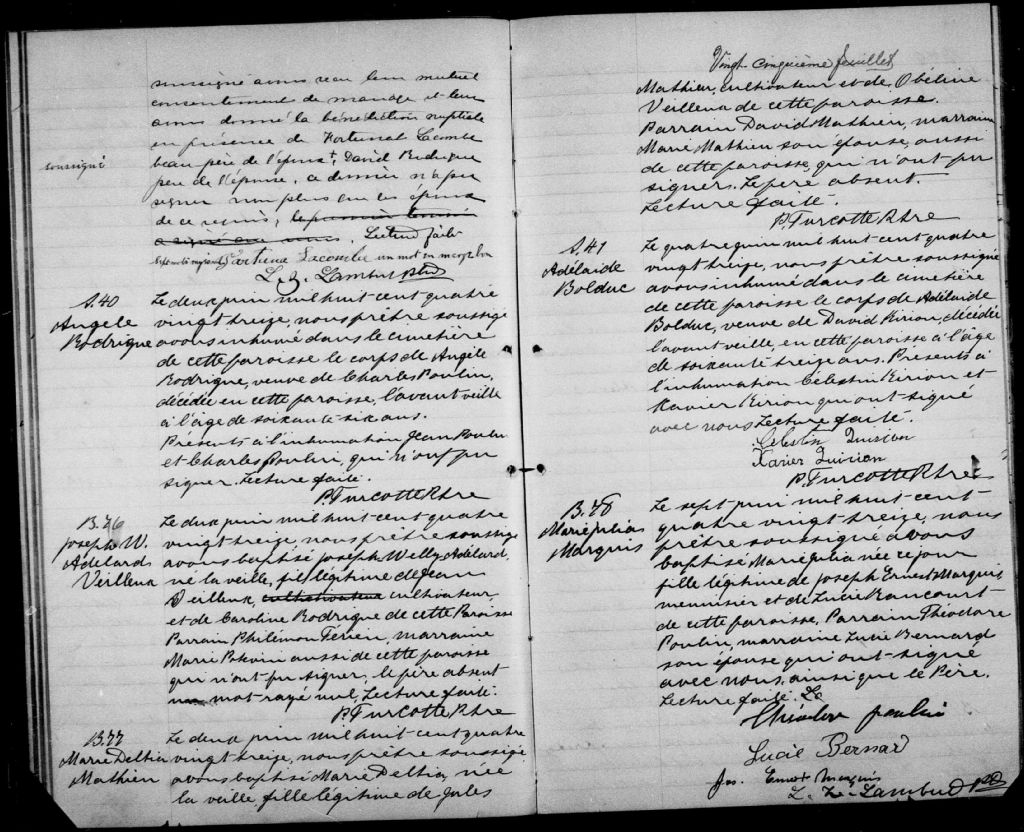 soussigné avons reçu leur mutuel
consentement de mariage et leur
avons donné la bénédiction nuptiale
en présence de Fortunat Lacombe
beau père de l'époux, David Rodrigue
soussigné
père de l'épouse, ce dernier n'a pu
signer non plus que les époux
de ce requis,
Lecture faite
Lacombe un mot en marge bon
L. Z. Lambert Ptre
S. 40
Angèle
Rodrigue
Le deux juin mil huit cent quatre
vingt treize, nous prêtre soussigé
avons inhumé dans le cimetière
de cette paroisse le corps de Angèle
Rodrigue, veuve de Charles Poulin,
décédée en cette paroisse, l'avant veille
à l'âge de soixante six ans.
Présents à l'inhumation Jean Poulin
et Charles Poulin, qui n'ont pu
signer. Lecture faite.
P. Turcotte Ptre
B. 76
Joseph W.
Adélard
Veilleux
Le deux juin mil huit cent quatre
vingt treize, nous prêtre soussigé
avons baptisé Joseph Welly Adélard,
né la veille, fils légitime de Jean
Veilleux, cultivateur,
et de Caroline Rodrigue de cette Paroisse
Parrain Philémon Férien, marraine
Marie Potvin aussi de cette paroisse
qui n'ont pu signer, le père absent
un mot rayé nul, Lecture faite.
P. Turcotte Ptre
B. 77
Marie Deltia
Mathieu
Le deux juin mil huit cent quatre
vingt treize, nous prêtre soussigé
avons baptisé Marie Deltia, née
la veille fille légitime de Jules
Vingt cinquième feuillet
Mathieu, cultivateur et de Obéline
Veilleux de cette paroisse.
Parrain David Mathieu, marraine
Marie Mathieu son épouse, aussi
de cette paroisse, qui n'ont pu
signer. Le père absent.
Lecture faite.
P. Turcotte Ptre
S. 41
Adélaide
Bolduc
Le quatre juin mil huit cent quatre
vingt treize, nous prêtre soussigné
avons inhumé dans le cimetière
de cette paroisse le corps de Adélaide
Bolduc, veuve de David Kirion, décédée
l'avant veille, en cette paroisse à l'âge
de soixante treize ans. Présents à
l'inhumation Célestin Kirion et
Xavier Kirion qui ont signé
avec nous Lecture faite.
Celestin Quirion
Xavier Quirion
P. Turcotte Ptre
B. 78
Marie Julia
Marquis
Le sept juin mil huit cent
quatre vingt treize, nous
prêtre soussigné avons
baptisé Marie Julia née ce jour
fille légitime de Joseph Ernest Marquis,
menuisier et de Lucie Rancourt
de cette paroisse. Parrain Théodore
Poulin, marraine Lucie Bernard
son épouse qui ont signé
avec nous, ainsi que le Père.
Lecture faite.
Théodore poulin
Lucie Bernard
Jos. Ernest Marquis
L. Z. Lambert Ptre